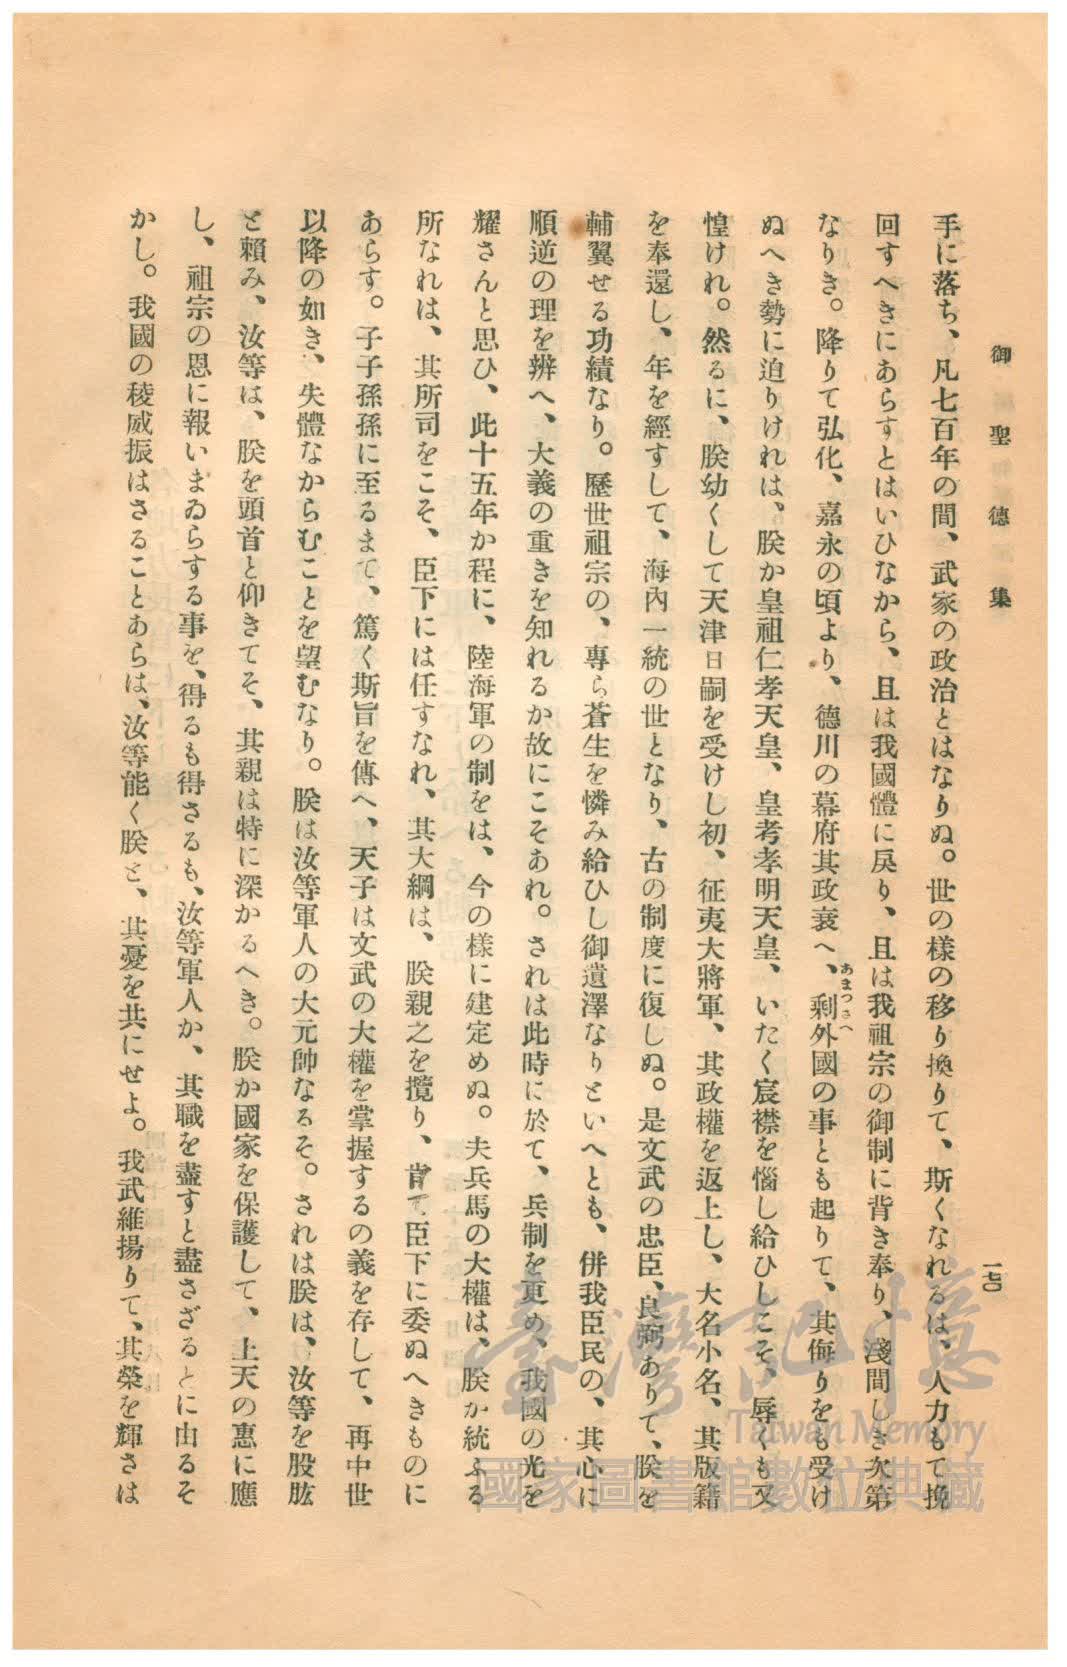 御聖德集
一七〇
手に落ち、凡七百年の間、武家の政治とはなりぬ。世の樣の移り換りて、斯くなれるは、人力もて挽
回すへきにあらすとはいひなから、且は我國體に戾り、且は我祖宗の御制に背き奉り、淺間しき次第
なりき。降りて弘化、嘉永の頃より、德川の幕府其政衰へ、剩外國の事とも起りて、其侮りをも受け
あまつさへ
ぬへき勢に迫りけれは、朕か皇祖仁孝天皇、皇考孝明天皇、いたく宸襟を惱し給ひしこそ、辱くも又
惶けれ。然るに、朕幼くして天津日嗣を受けし初、征夷大將軍、其政權を返上し、大名小名、其版籍
を奉還し、年を經すして、海內一統の世となり、古の制度に復しぬ。是文武の忠臣、良弼ありて、朕を
輔翼せる功績なり。歷世祖宗の、專ら蒼生を憐み給ひし御遺澤なりといへとも、併我臣民の、其心に
順逆の理を辨へ、大義の重きを知れるか故にこそあれ。されは此時に於て、兵制を更め、我國の光を
耀さんと思ひ、此十五年か程に、陸海軍の制をは、今の樣に建定めぬ。夫兵馬の大權は、朕か統ふる
所なれは、其所司をこそ、臣下には任すなれ、其大綱は、朕親之を攬り、肯て臣下に委ぬへきものに
あらす。子子孫孫に至るまて、篤く斯旨を傳へ、天子は文武の大權を掌握するの義を存して、再中世
以降の如き、失體なからむことを望むなり。朕は汝等軍人の大元帥なるそ。されは朕は、汝等を股肱
と賴み、汝等は、朕を頭首と仰きてそ、其親は特に深かるへき。朕か國家を保護して、上天の惠に應
し、祖宗の恩に報いまゐらする事を、得るも得さるも、汝等軍人か、其職を盡すと盡さざるとに由るそ
かし。我國の稜威振はさることあらは、汝等能く朕と、其憂を共にせよ。我武維揚りて、其榮を輝さは
臺灣記憶
Taiwan Memory
國家圖書館數位典藏